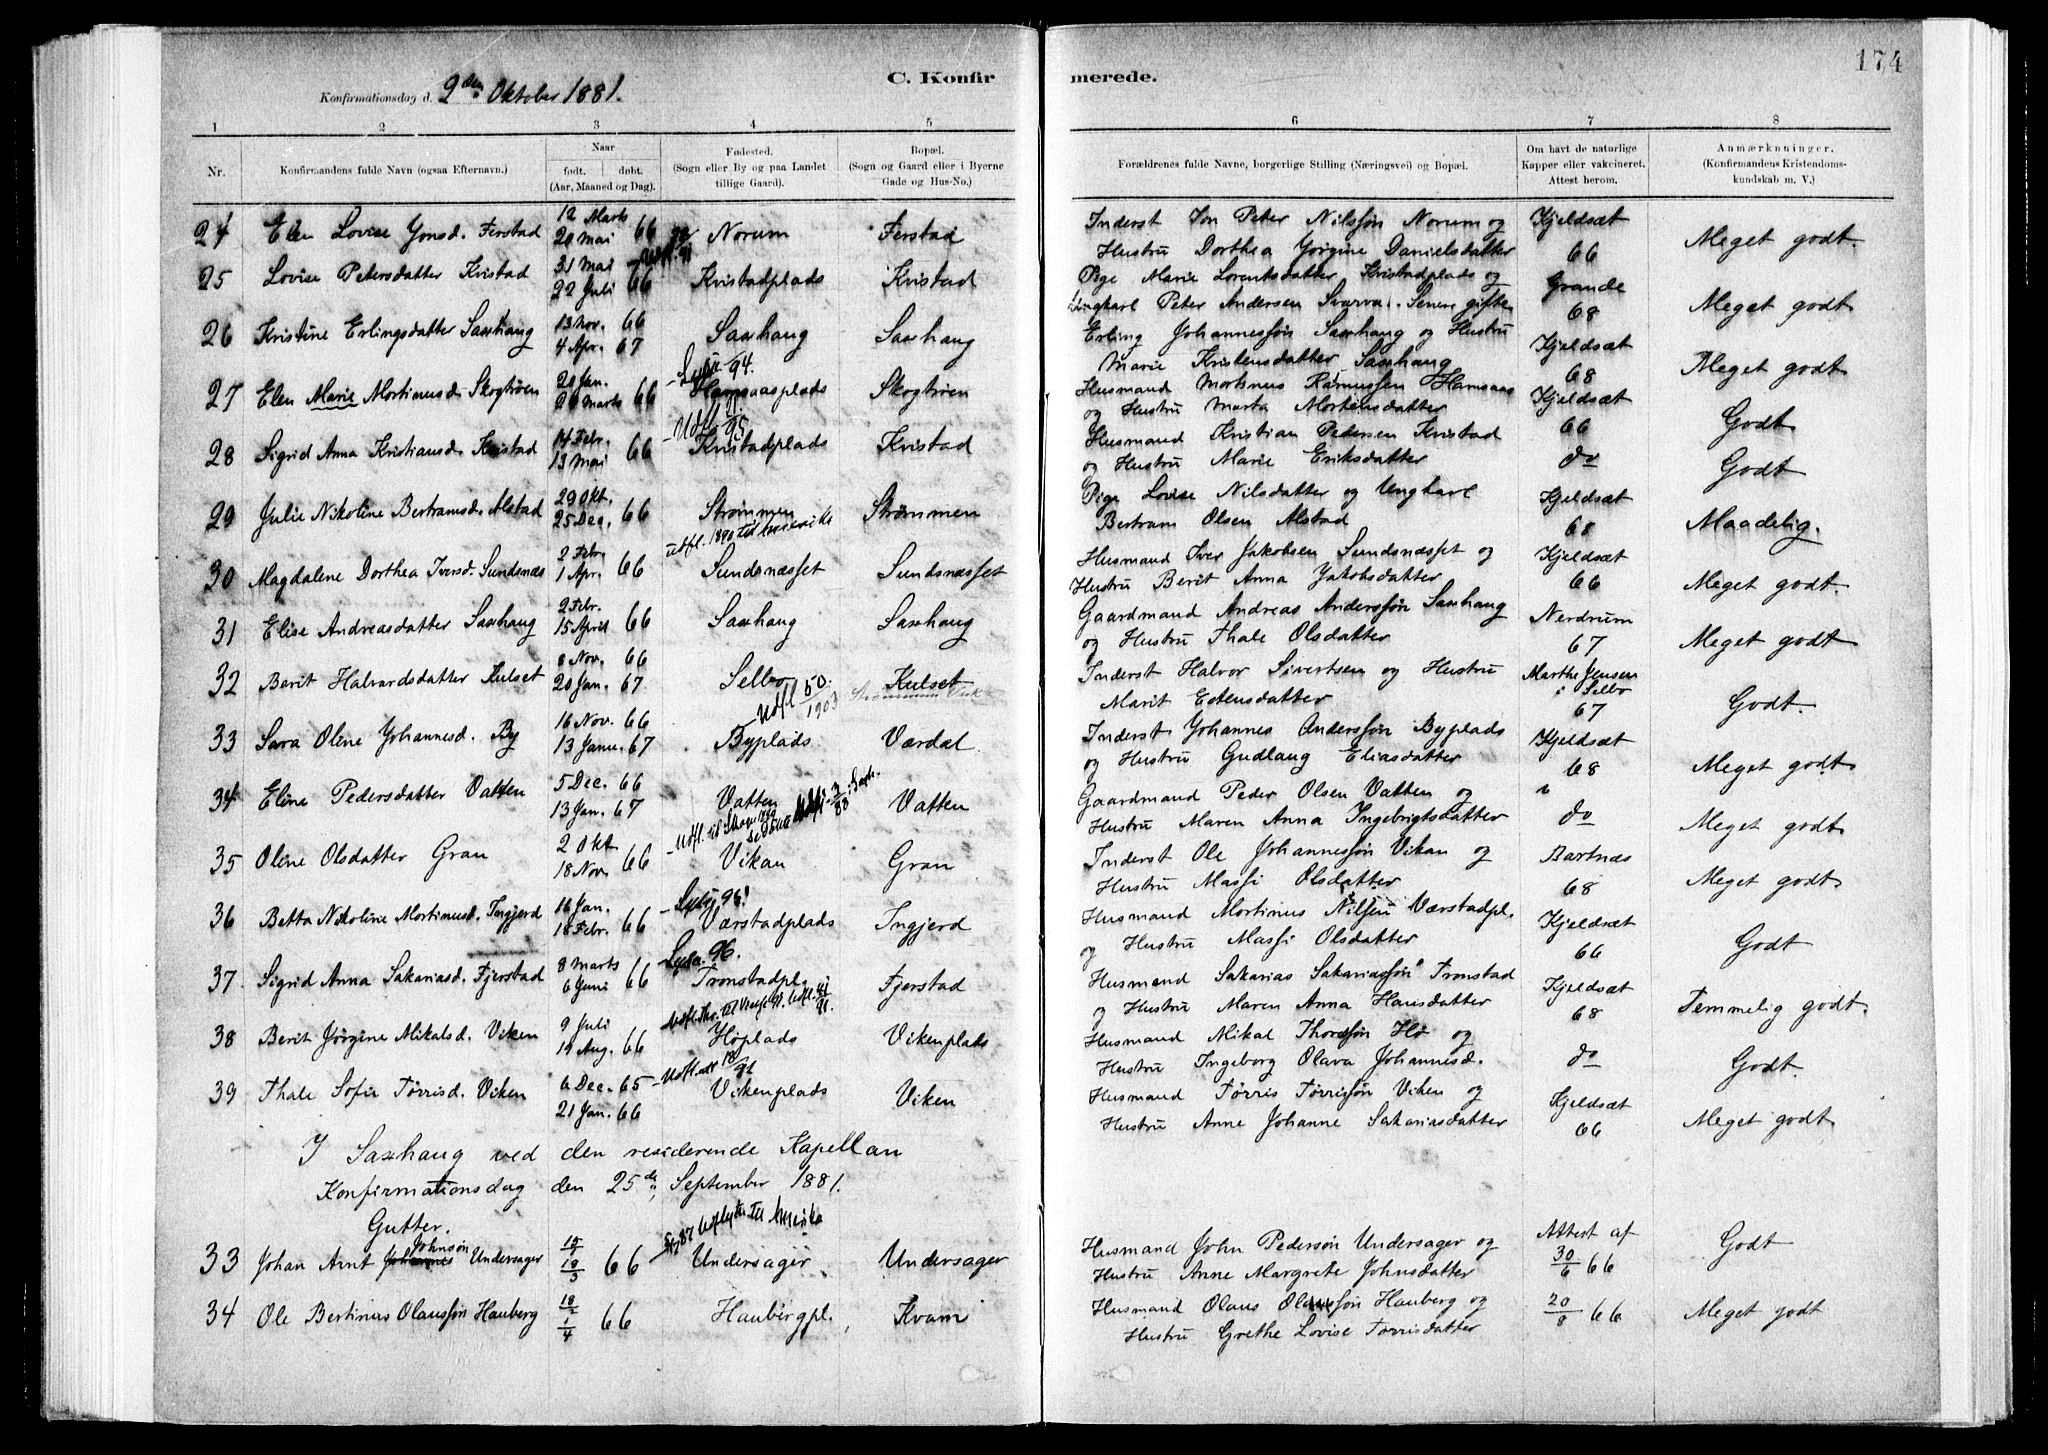 174
C. Konfirmerede.
Konfirmationsdag d. 2den Oktober 1881.
1 2 3 4 5 6 7 8
Nr.
Konfirmandens fulde Navn (ogsaa Efternavn.)
Naar
født. døbt.
(Aar, Maaned og Dag).
Fødested.
(Sogn eller By og paa Landet
tillige Gaard).
Bopæl.
(Sogn og Gaard eller i Byerne
Gade og Hus-No.)
Forældrenes fulde Navne, borgerlige Stilling (Næringsvei) og Bopæl.
Om havt de naturlige
Kapper eller vakcineret.
Attest herom.
Anmærkninger.
(Konfirmandens Kristendoms-
kundskab m. V.)
24 Elen Lovise Jonsd. Ferstad 12 Marts 20 Mai 66 Norum Ferstad
Inderst Jon Peter Nilssøn Norum og Kjeldsæt
Hustru Dorthea Jørgine Danielsdatter 66 Meget godt.
25 Lovise Petersdatter Kvistad 31 Mai 22 Juli 66 Kvistadplads Kvistad
Pige Marie Lorentsdatter Kvistadplads og Grande
Ungkarl Peter Andersen Svarva. Senere gifte 68 Meget godt
26 Kristine Erlingsdatter Saxhaug 13 Nov. 66 4 Apr. 67 Saxhaug Saxhaug
Erling Johannessøn Saxhaug og Hustru Kjeldsæt
Marie Kristensdatter Saxhaug 68 Meget godt
27 Elen Marie Mortinusd. Skogtrøen 20 Jan. 26 Marts 66 Hamsaasplads Skogtrøen
Husmand Mortinus Rasmussen Hamsaas Kjeldsæt
og Hustru Marta Mortensdatter 66 Godt
28 Sigrid Anna Kristiansd. Kvistad 14 Febr. 13 Mai 66 Kvistadplads Kvistad
Husmand Kristian Pedersen Kvistad
og Hustru Marie Eriksdatter do Godt
29 Julie Nikoline Bertramsd. Alstad 29 Okt. 25 Dec. 66 Strømmen Strømmen
Pige Lovise Nilsdatter og Ungkarl Kjeldsæt
Bertram Olsen Alstad 68 Maadelig.
30 Magdalene Dorthea Iversd. Sundsnæs 2 Febr. 1 Apr. 66 Sundsnæsset Sundsnæsset
Husmand Iver Jakobsen Sundsnæsset og Kjeldsæt
Hustru Berit Anna Jakobsdatter 66 Meget godt.
31 Elise Andreasdatter Saxhaug 2 Febr. 15 April 66 Saxhaug Saxhaug
Gaardmand Andreas Anderssøn Saxhaug Nerdrum
og Hustru Thale Olsdatter 67 Meget godt
32 Berit Halvardsdatter Kulset 8 Nov. 66 20 Jan. 67 Selbo Kulset
Udfl 50/1903
Inderst Halvor Sivertsen og Hustru Marthe Jensen
Marit Estensdatter i Selbo 67 Godt.
33 Sara Oline Johannesd. By 16 Nov. 66 13 Janu. 67 Byplads Værdal
Inderst Johannes Anderssøn Byplads Kjeldsæt
og Hustru Gudlaug Eliasdatter 68 Meget godt
34 Eline Pedersdatter Vatten 5 Dec. 66 13 Jan. 67 Vatten Vatten
Gaardmand Peder Olsen Vatten og
Hustru Maren Anna Ingebrigtsdatter do Meget godt
35 Oline Olsdatter Gran 2 Okt 18 Nov. 66 Vikan Gran
Inderst Ole Johannessøn Vikan og Bartnæs
Hustru Massi Olsdatter 68 Meget godt
36 Betta Nikoline Mortinusd. Ingjerd 16 Jan. 18 Febr. 66 Værstadplads Ingjerd
Husmand Mortinus Nilsen Værstadpl. Kjeldsæt
og Hustru Massi Olsdatter 66 Godt
37 Sigrid Anna Sakariasd. Fjerstad 8 Marts 6 Juni 66 Tronstadpl. Fjerstad
Husmand Sakarias Sakariassøn Tronstad Kjeldsæt
og Hustru Maren Anna Hansdatter 68 Temmelig godt.
38 Berit Jørgine Mikalsd. Viken 9 Juli 19 Aug. 66 Høplads Vikenplads
Husmand Mikal Thoresøn Hø og
Hustru Ingeborg Olava Johannesd. do Godt.
39 Thale Sofie Tørrisd. Viken 6 Dec. 65 21 Jan. 66 Vikenplads Viken
Husmand Tørris Tørrissøn Viken og Kjeldsæt
Hustru Anne Johanne Sakariasdatter 66 Meget godt
I Saxhaug ved den residerende Kapellan
Konfirmationsdag den 25de September 1881.
Gutter.
33 Johan Arnt Johnsøn Undersager 15/1 19/3 66 Undersager Undersager
Udflyttet til Amerika
Husmand John Pedersøn Undersager og Attest af
Hustru Anne Margrete Johnsdatter 30/6 66 Godt
34 Ole Bertinus Olaussøn Hauberg 18/2 1/4 66 Haubergpl. Kvam
Husmand Olaus Olaussøn Hauberg og 20/8 66
Hustru Grethe Lovise Tørrisdatter Meget godt